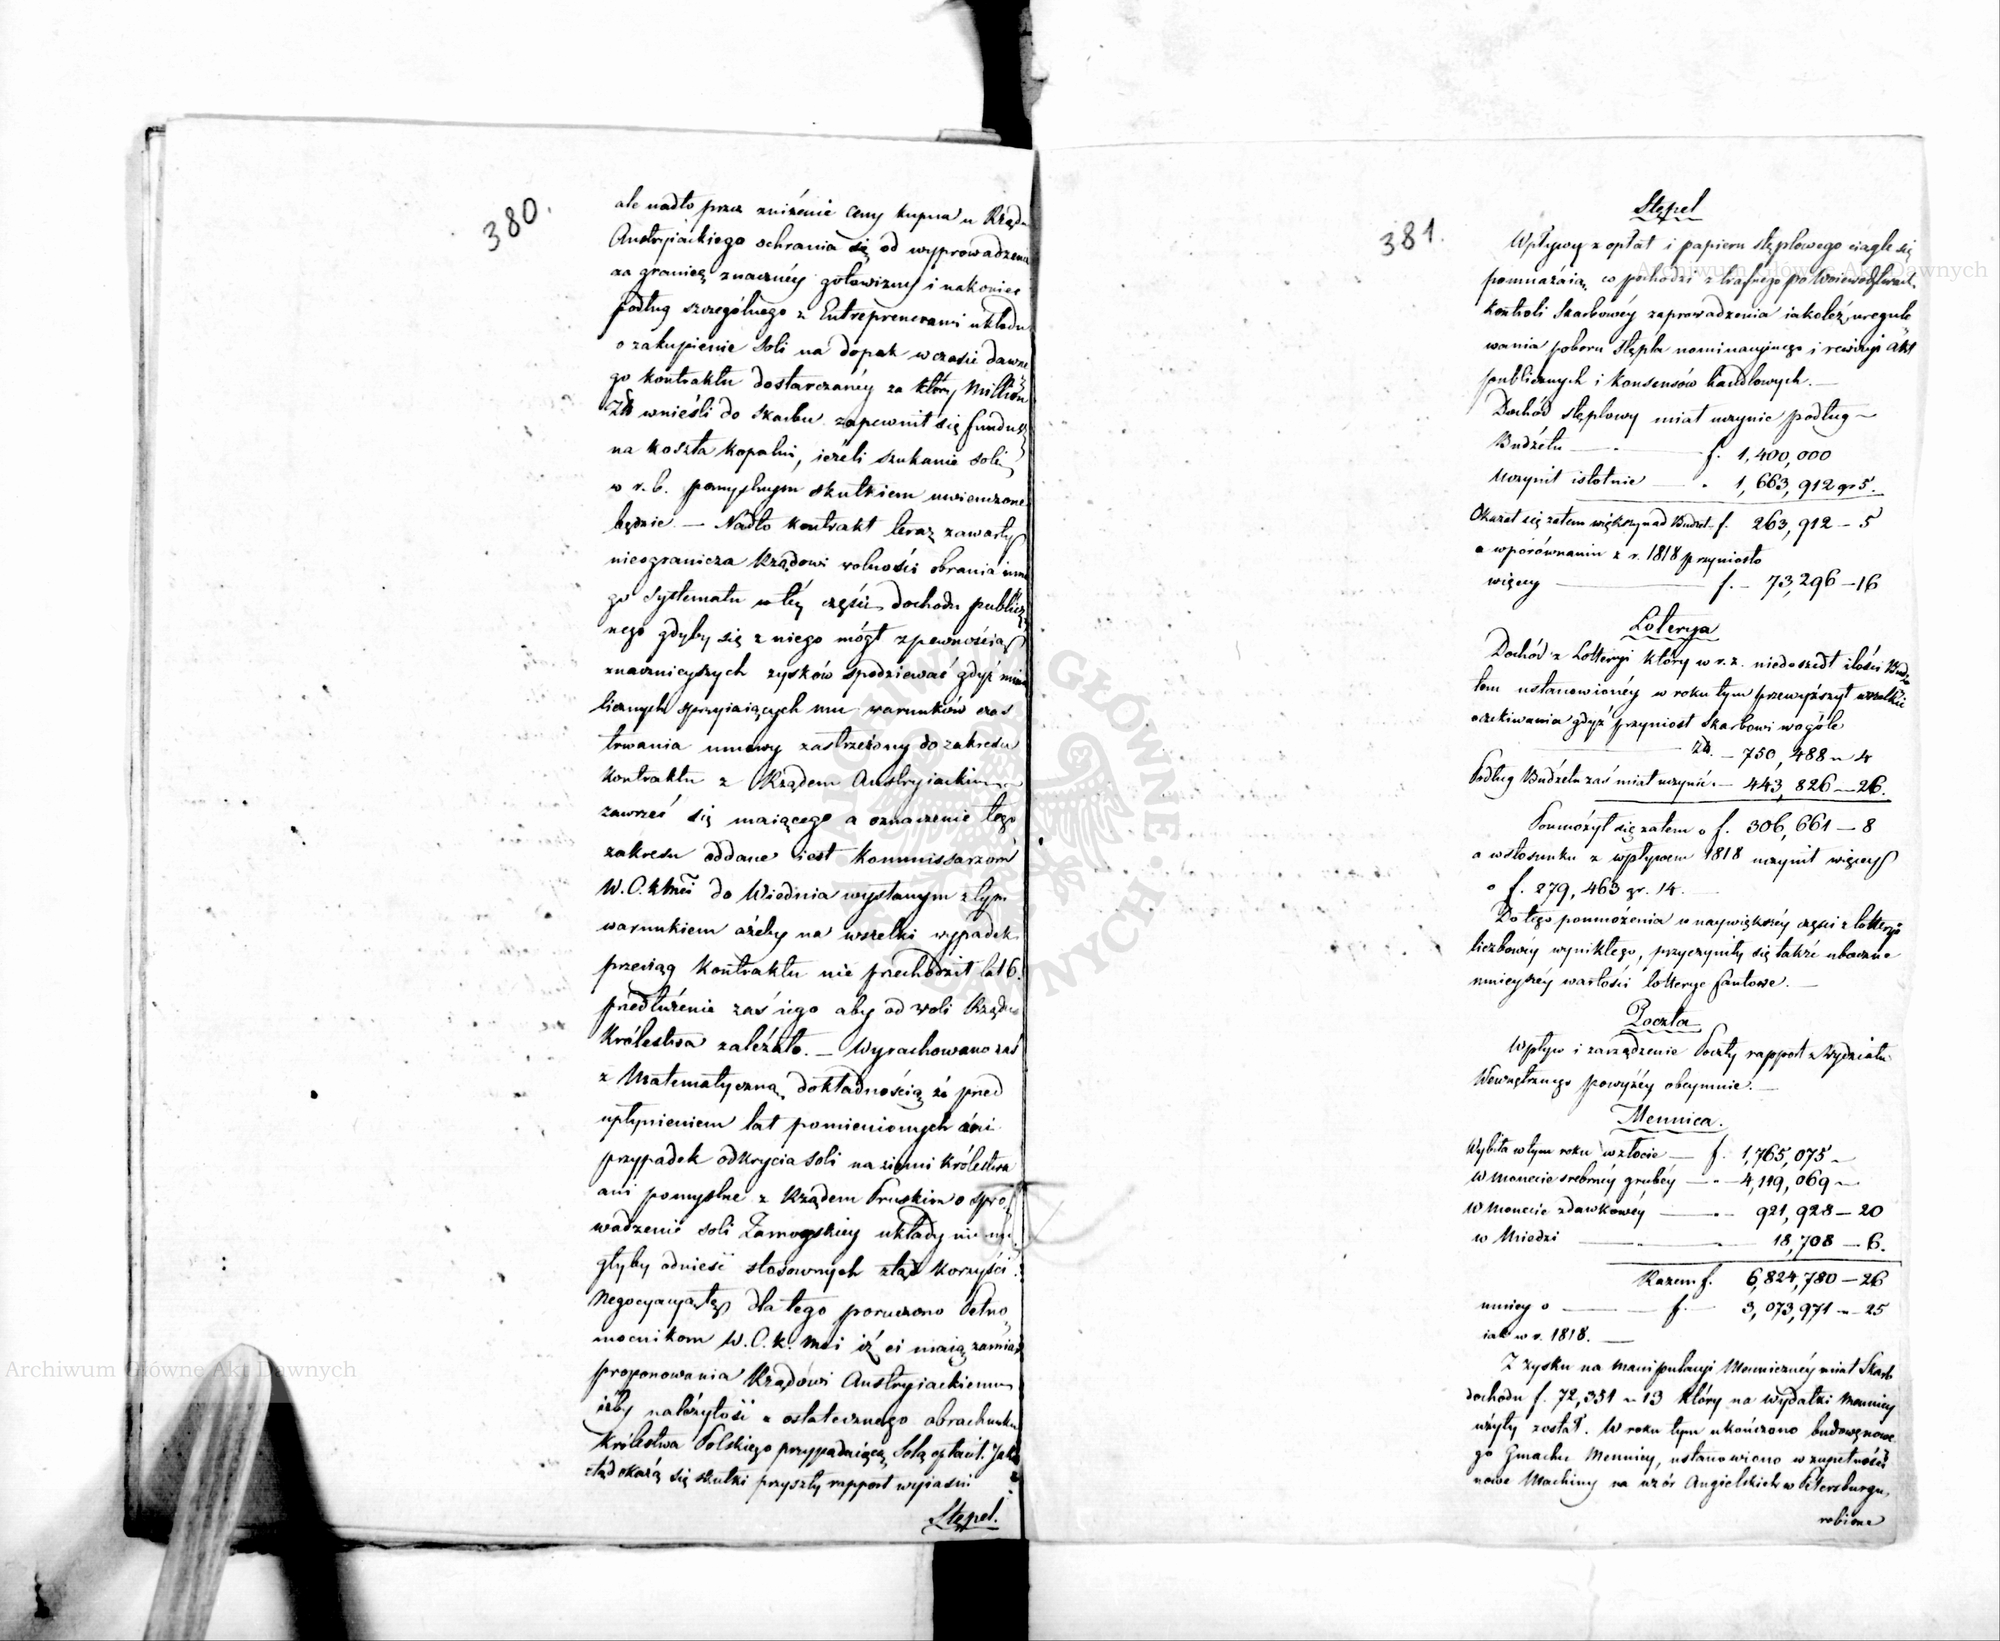 380.
ale nadto przez zniżenie ceny kupna u Rządu
Austryiackiego ochrania się od wyprowadzenia
za granicę znaczney gotowizny i nakoniec
podług szczególnego z Entreprenerami układu
o zakupienie soli na dopak w czasie dawne
go kontraktu dostarczaney za który Million
Zł wnieśli do Skarbu zapewnił się fundusz
na koszta kopalni, ieżeli szukanie soli
w r. b. pomyślnym skutkiem uwieńczone
będzie. — Nadto kontrakt teraz zawarty
nieogranicza Rządowi wolności obrania inne
go systematu w tey części dochodu publicz
nego gdyby się z niego mógł z pewnością
znacznieyszych zysków spodziewać gdyż mimo
licznych sprzyiaiących mu warunków czas
trwania umowy zastrzeżony do zakresu
kontraktu z Rządem Austryiackim
zawrzeć się maiącego a oznaczenie tego
zakresu oddane iest Kommissarzom
W. C. K Mci do Wiednia wysłanym z tym
warunkiem ażeby na wszelki wypadek
przeciąg kontraktu nie przechodził lat 6.
przedłużenie zaś iego aby od woli Rządu
Królestwa zależało. — Wyrachowano zaś
z Matematyczną dokładnością że przed
upłynieniem lat pomienionych ani
przypadek odkrycia soli na ziemi Królestwa
ani pomyślne z Rządem Pruskim o spro
wadzenie soli Zamorskiey układy nie mo
głyby odnieść stosownych ztąd korzyści.
Negocyacyą tę dla tego poruczono Pełno
mocnikom W. C. K. Mci iż ci maią zamiar
proponowania Rządowi Austryiackiemu
iżby należytość z ostatecznego obrachunku
Królestwa Polskiego przypadaiącą Solą opłacił. Jakie
ztąd okażą się skutki przyszły rapport wyiaśni
Stępel.
381.
Stępel
Wpływy z opłat i papieru stęplowego ciągle się
pomnażaią, co pochodzi z trafnego po Woiewództwach
kontroli Skarbowéy zaprowadzenia iakoteż uregulo
wania poboru stępla nominacyinego i rewizyi Akt
publicznych i konsensów handlowych. —
Dochód stęplowy miał uczynić podług
Budżetu — f. 1,400,000
uczynił istotnie — 1,663,912 gr 5.
Okazał się zatem większy nad Budżet f. 263,912 — 5
a w porównaniu z r. 1818 przyniosło
więcey — f. — 73,296 — 16
Loterya
Dochód z Lotteryi który w r. z. niedoszedł ilości Budże
tem ustanowionéy w roku tym przewyższył wszelkie
oczekiwania gdyż przyniósł Skarbowi wogóle
Zł. — 750,488 „ 4
Podług Budżetu zaś miał uczynić — 443,826 — 26.
Pomnożył się zatem o f. 306,661 — 8
a w stosunku z wpływem 1818 uczynił więcey
o f. 279,463 gr. 14. —
Do tego pomnożenia w naywiększéy części z lotteryi
liczbowéy wynikłego, przyczyniły się także uboczne
mnieyszéy wartości lotterye fantowe. —
Poczta
Wpływ i zarządzenie Poczty rapport z Wydziału
Wewnętrznego powyżéy obeymuie. —
Mennica.
Wybita w tym roku w złocie — f. 1,765,075 —
W monecie srebrnéy grubéy — 4,119,069 —
W Monecie zdawkowey — 921,928 — 20
w Miedzi — 18,708 — 6.
Razem f. 6,824,780 — 26
mniey o — f. — 3,073,971 — 25
iak w r. 1818. —
Z zysku na manipulacyi Menniczney miał Skarb
dochodu f. 72,351 „ 13 który na wydatki Mennicy
użyty został. W roku tym ukończono budowę nowe
go Gmachu Mennicy, ustanowiono w zupełności
nowe Machiny na wzór Angielskich w Petersburgu
robione
Archiwum Główne Akt Dawnych
Archiwum Główne Akt Dawnych